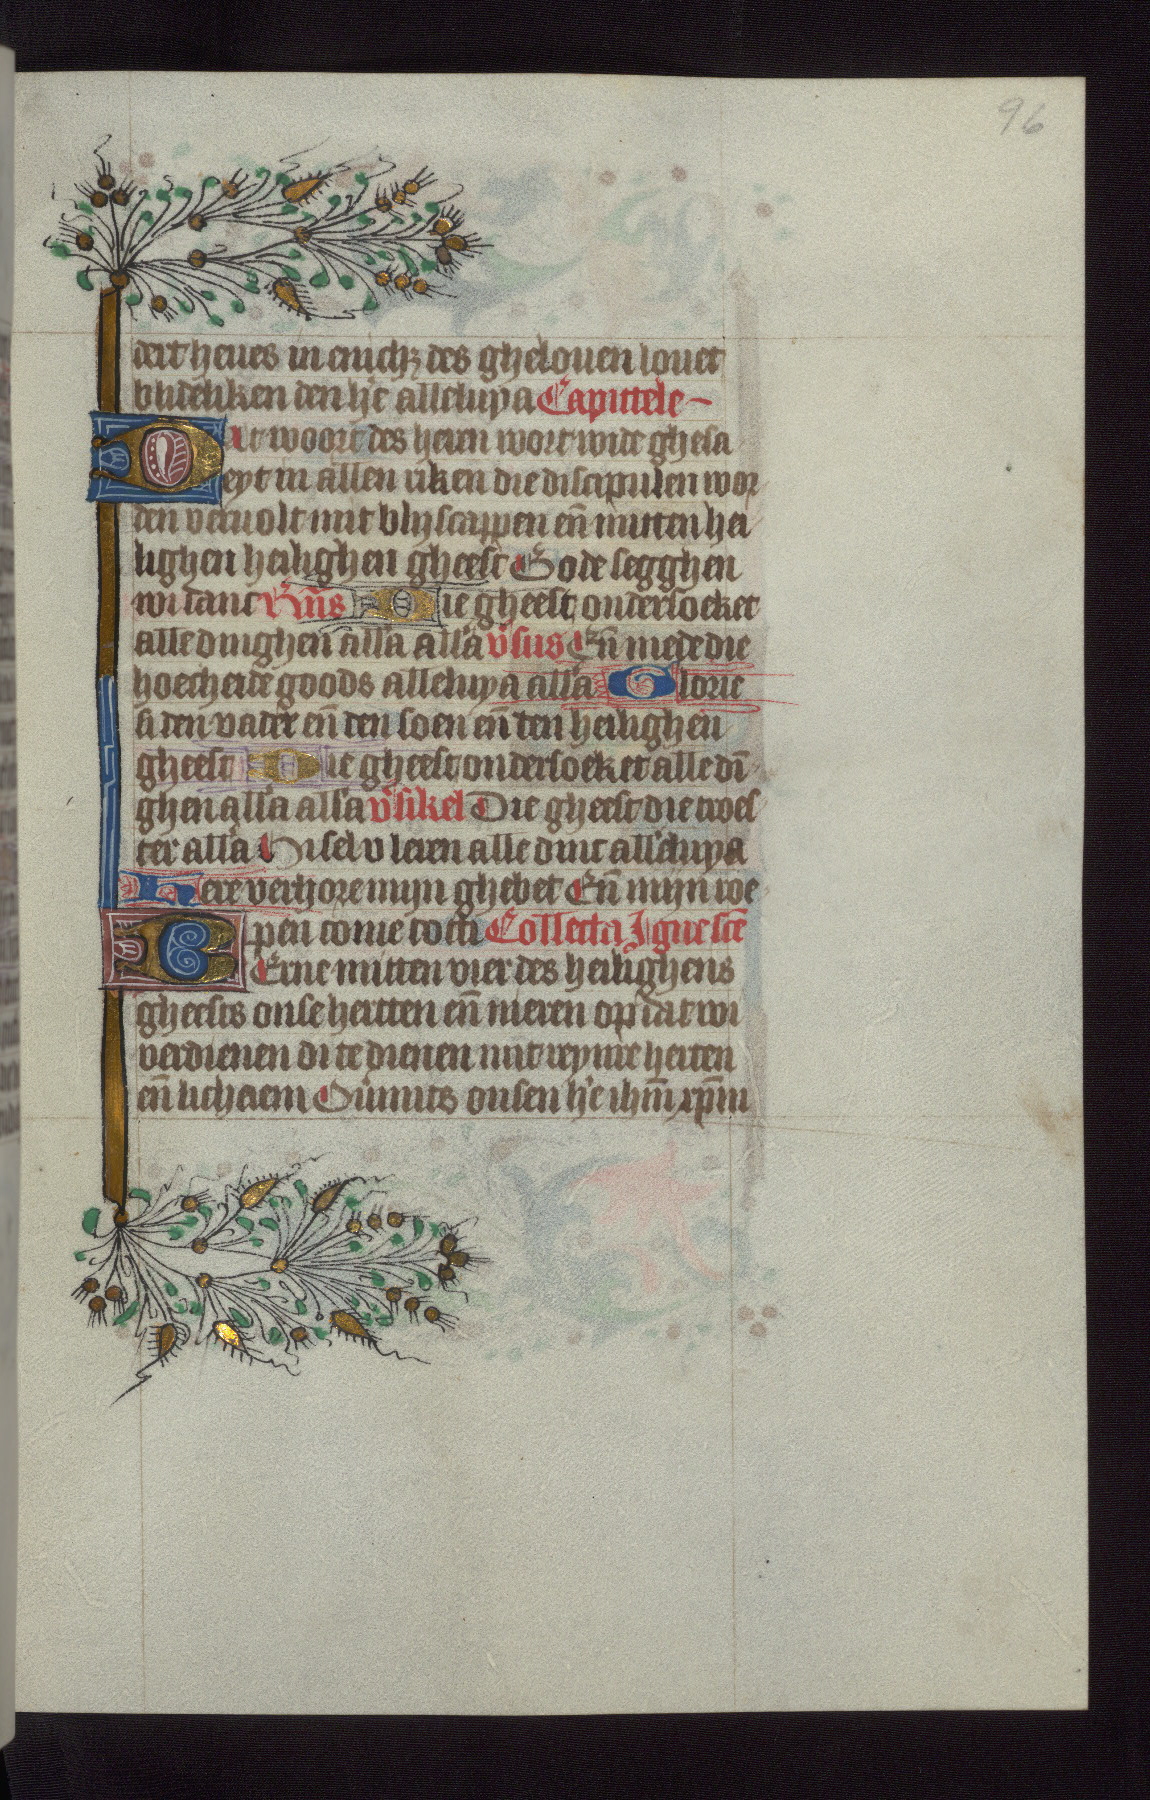 96
deit heues in enich des ghelouen louet
blideliken den he alleluya Capittele
Dat woort des heren wort wide ghesa
eyt in allen riken die discipulen wor
den veruolt mit blyscappen en̄ mitten hei
lighen heilighen gheest Gode segghen
wi danc Die gheest ondersoeket
alle dinghen alla alla vsus En̄ mede die
hoecheide goods alleluya alla Glorie
si den vader en̄ den soen en̄ den heilighen
gheest Die gheest ondersoeket alle di
ghen alla alla vsikel Die gheest die troes
ter alla Hi sel v leren alle dinc alleluya
Here verhore mijn ghebet En̄ mijn roe
pen come totti Collecta Igne sce
BErne mitten vier des heilighens
gheests onse hertten en̄ nieren op dat wi
verdienen di te dienen mit reynre herten
en̄ lichaem Ouermits onsen he ihm̄ xp̄m